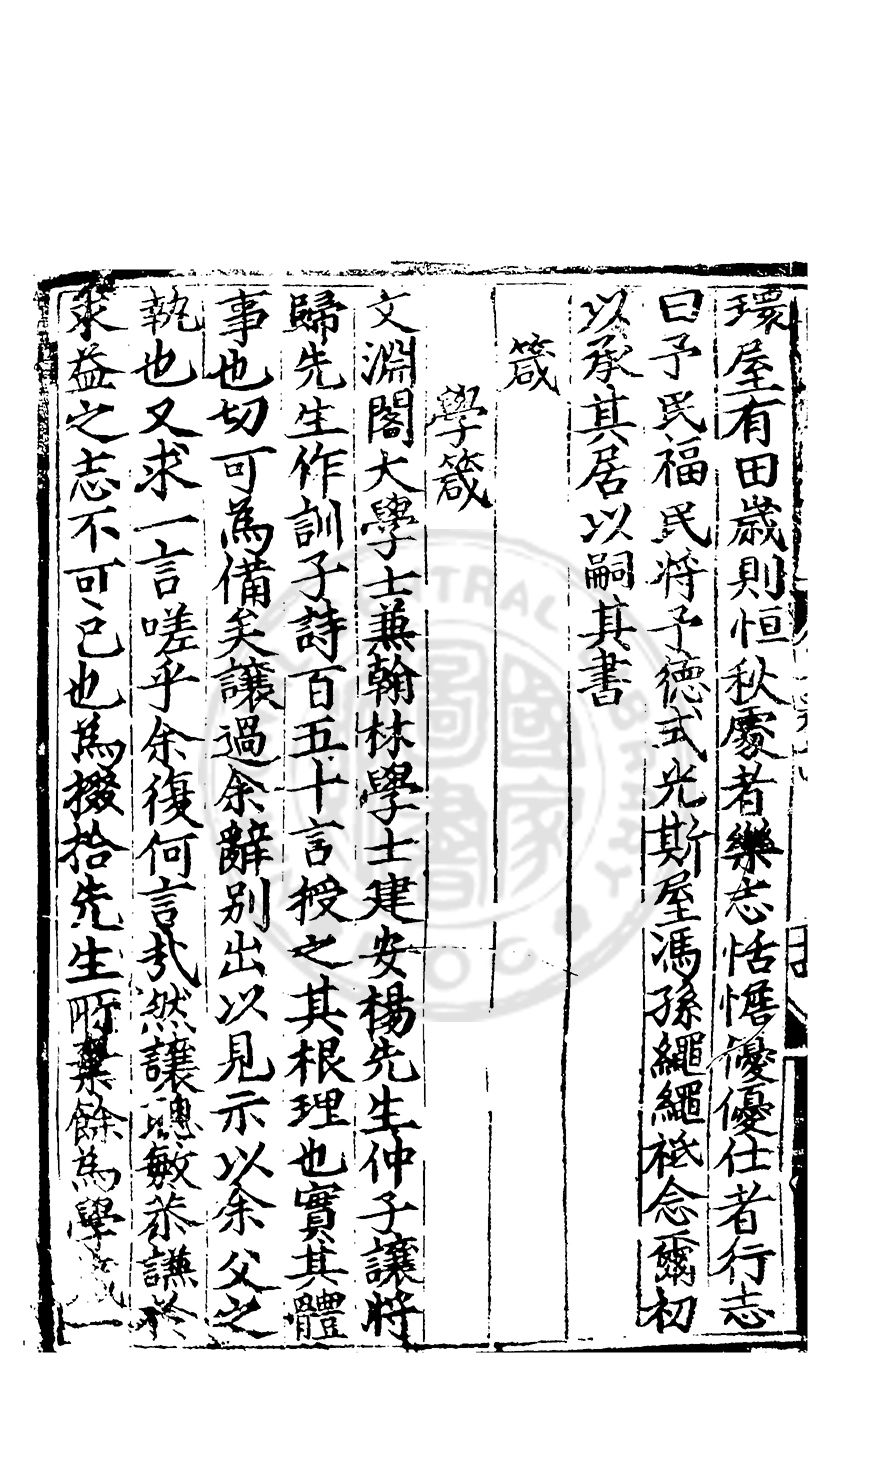 環屋有田歲則恒秋處者樂志恬憺優優仕者行志
曰予民福民將予德式光斯屋馮孫繩繩祗念爾初
以承其居以嗣其書
箴
學箴
文淵閣大學士兼翰林學士建安楊先生仲子讓將
歸先生作訓子詩百五十言授之其根理也實其體
事也切可為備矣讓過余辭別出以見示以余父之
執也又求一言嗟乎余復何言哉然讓聰敏恭謙於
求益之志不可已也為掇拾先生所棄餘為學箴一